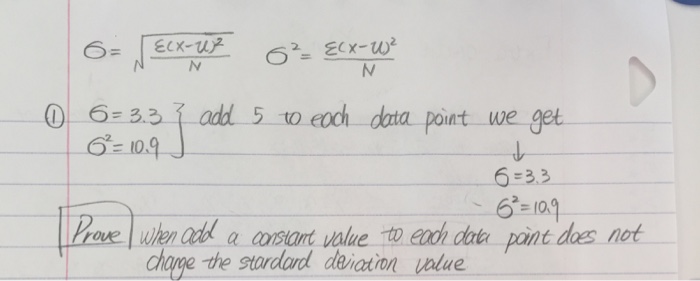 б = √Σ(x-u)²/N б² = Σ(x-u)²/N
① б = 3.3 } add 5 to each data point we get
б² = 10.9
↓
б = 3.3
б² = 10.9
Prove when add a constant value to each data point does not
change the stardard deviation value